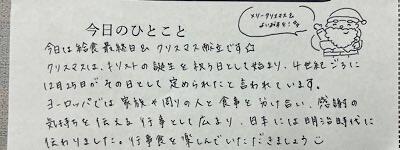 今日のひとこと
メリークリスマス&
よいお年を!!
今日は給食最終日& クリスマス献立です☆
クリスマスは、キリストの誕生を祝う日として始まり、4世紀ごろに
12月25日がその日として定められたと言われています。
ヨーロッパでは家族や周りの人と食事を分け合い、感謝の
気持ちを伝える行事として広まり、日本には明治時代に
伝わりました。行事食を楽しんでいただきましょう